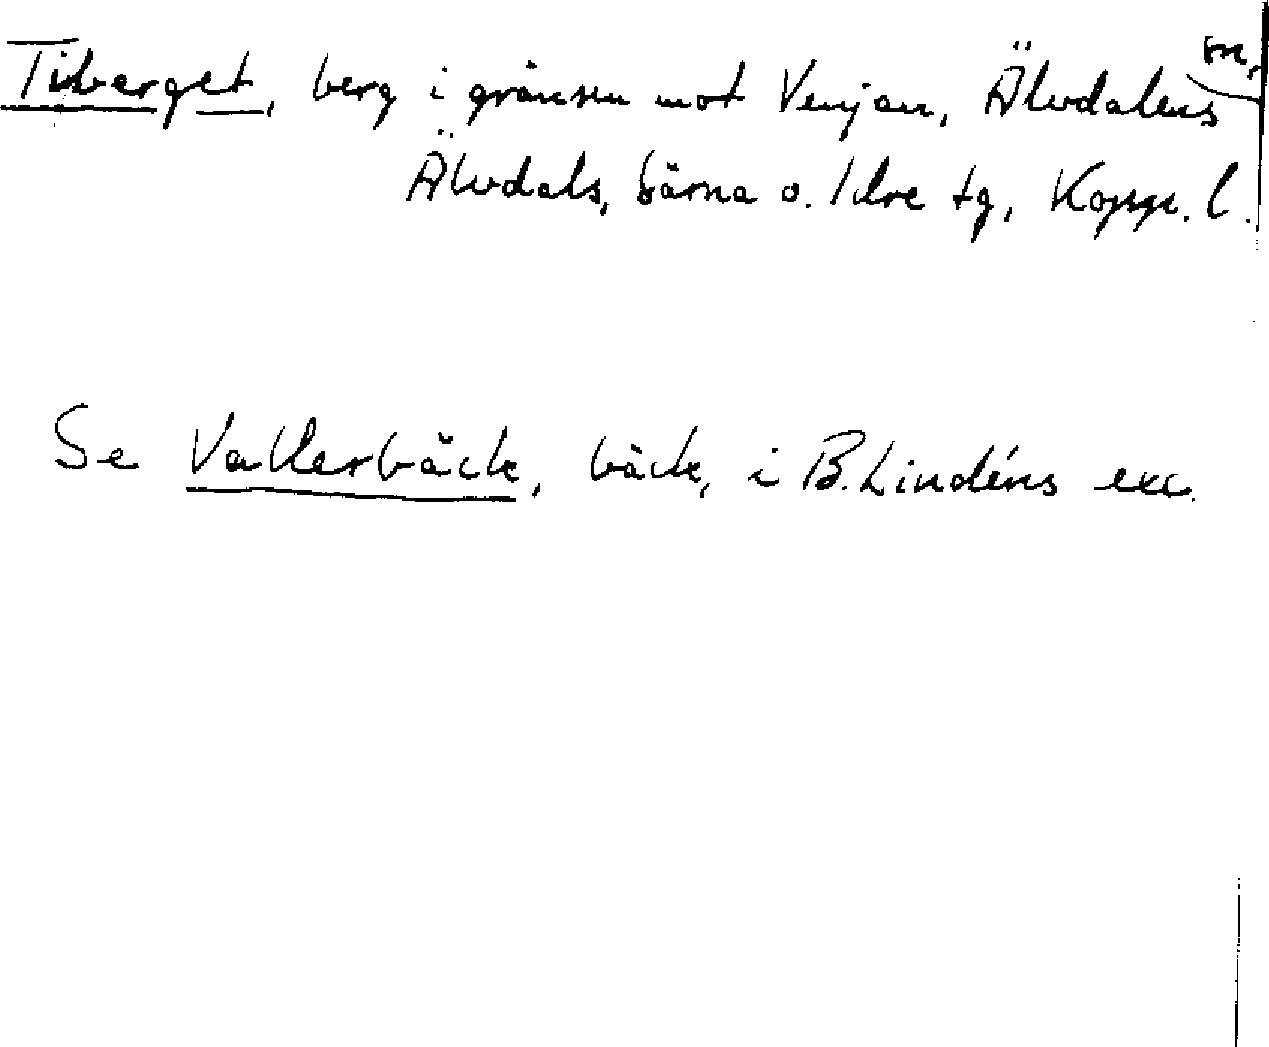 Tiberget, berg i gränsen mot Venjan, Älvdalens sn,
Älvdals, Särna o. Idre tg, Kopp. l.
Se Vallerbäck, bäck, i B. Lindéns exc.